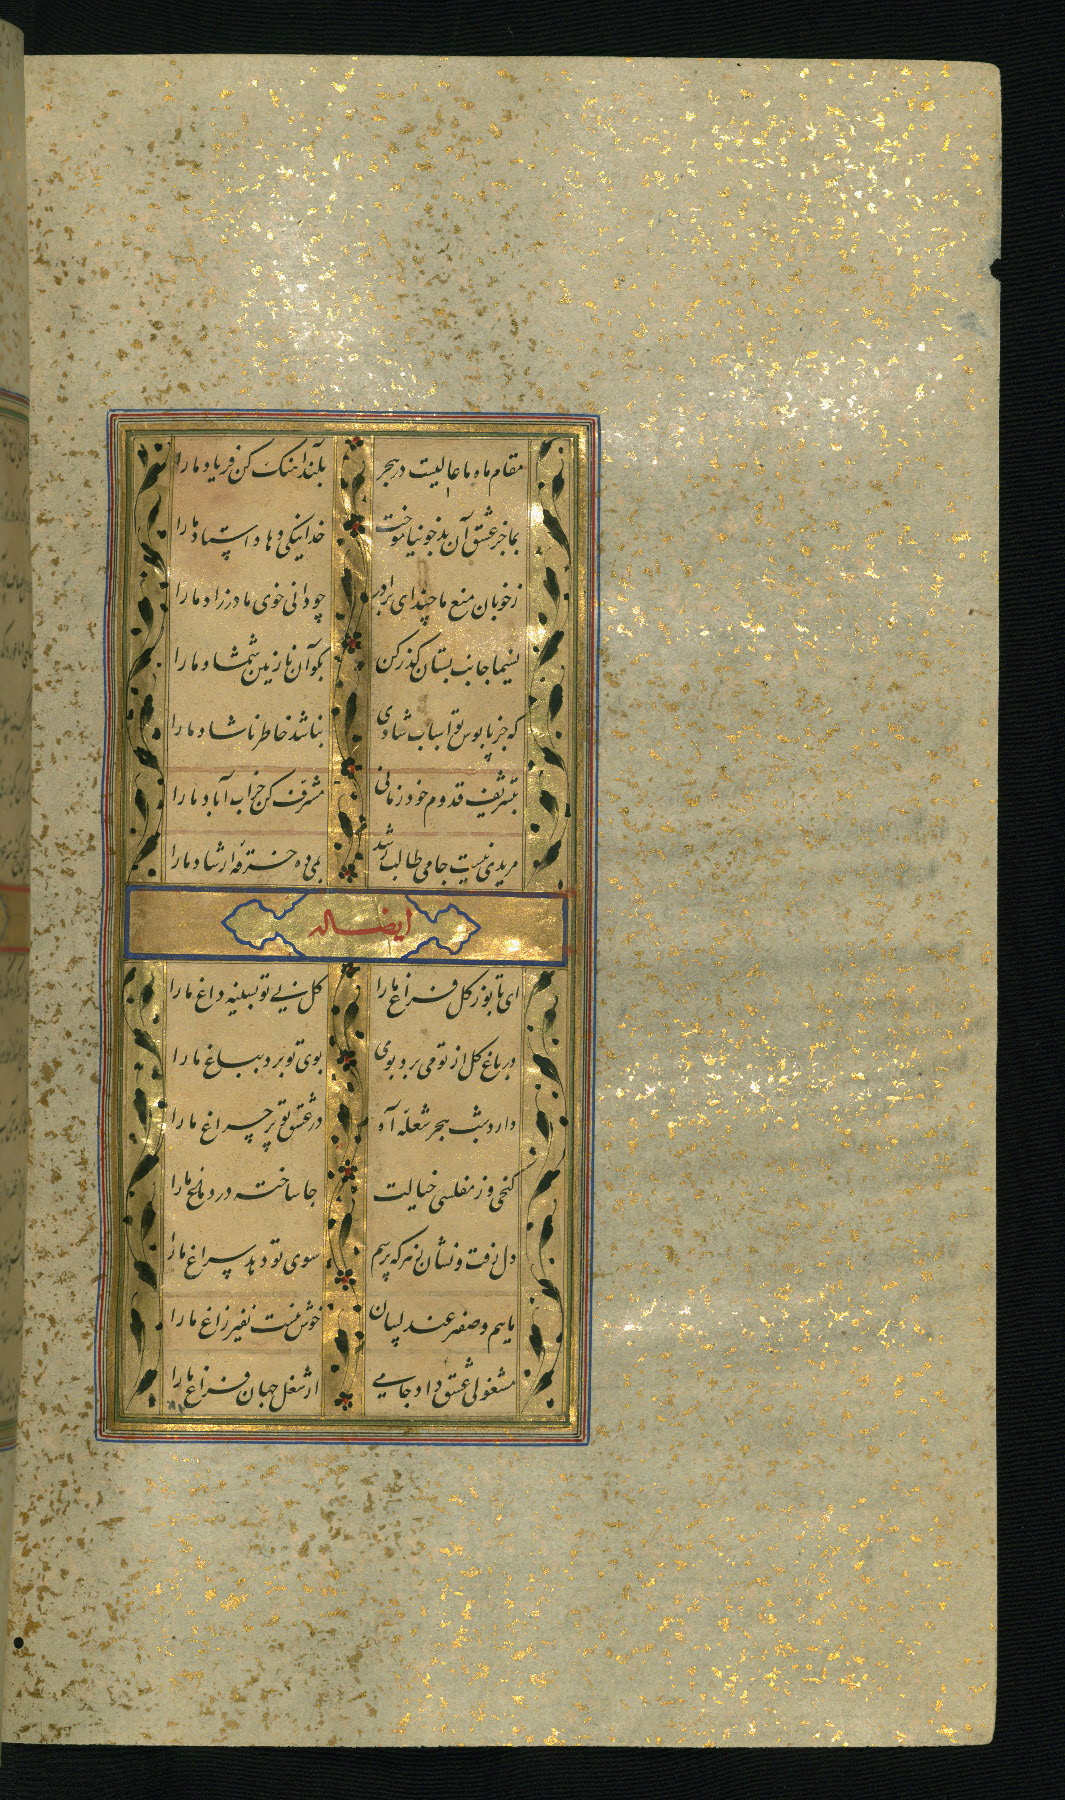 مقام ماه ما عالیست در هجر بلند آهنک کن فریاد ما را
بما جز عشق آن بدخو نیاموخت خدا نیکی دهاد استاد ما را
ز خوبان منع ما چند ای برادر چو دانی خوی مادرزاد ما را
نسیما جانب بستان گذر کن بکو آن نازنین شمشاد ما را
که جز پابوس تو اسباب شادی نباشد خاطر ناشاد ما را
بتشریف قدوم خود زمانی مشرف کن خراب آباد ما را
مریدی نیست جامی طالب رشد بمی ده خرقه ارشاد ما را
ایضا له
ای با تو ز کل فراغ ما را کل بی تو بسینه داغ ما را
در باغ کل از تو می برد بوی بوی تو برد بباغ ما را
دارد شب هجر شعله آه در عشق تو پر چراغ ما را
کنجی و ز مفلسی خیالت جا ساخته در دماغ ما را
دل رفت و نشان ز هر که پرسم سوی تو دهد سراغ ما را
ماییم و صفیر عندلیبان خوش نیست نفیر زاغ ما را
مشغولی عشق داد جامی از شغل جهان فراغ ما را